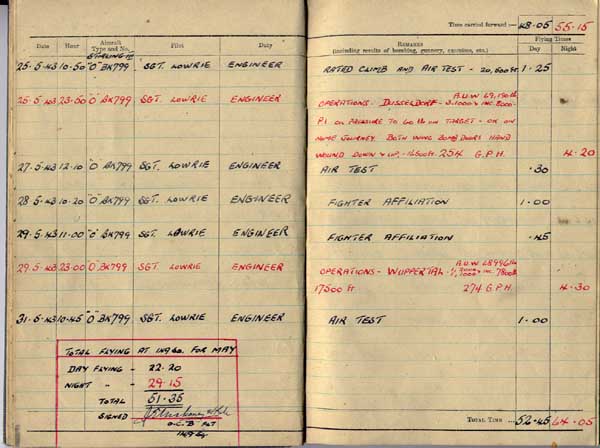 Time carried forward:— 48.05 55.15
Date Hour Aircraft Type and No. Pilot Duty Remarks (including results of bombing, gunnery, exercises, etc.) Flying Times Day Night
STIRLING III
25.5.43 10.50 "O" BK799 SGT. LOWRIE ENGINEER RATED CLIMB AND AIR TEST - 20,500 ft. 1.25
25.5.43 23.50 "O" BK799 SGT. LOWRIE ENGINEER A.U.W 69,150 lb
OPERATIONS - DUSSELDORF -
P.I. OIL PRESSURE TO 60 lb ON TARGET - OK ON
HOME JOURNEY. BOTH WING BOMB DOORS HAND
WOUND DOWN & UP. 254 G.P.H. 4.20
27.5.43 12.10 "O" BK799 SGT. LOWRIE ENGINEER AIR TEST .30
28.5.43 10.20 "O" BK799 SGT. LOWRIE ENGINEER FIGHTER AFFILIATION 1.00
29.5.43 11.00 "O" BK799 SGT. LOWRIE ENGINEER FIGHTER AFFILIATION .45
29.5.43 23.00 "O" BK799 SGT. LOWRIE ENGINEER A.U.W 68996 lb
OPERATIONS - WUPPERTAL -
17500 ft 274 G.P.H. 4.30
31.5.43 10.45 "O" BK799 SGT. LOWRIE ENGINEER AIR TEST 1.00
TOTAL FLYING AT 149 SQ. FOR MAY
DAY FLYING - 22.20
NIGHT " - 29.15
TOTAL 51.35
SIGNED
O.C. B FLT
149 Sq.
Total Time 52.45 64.05